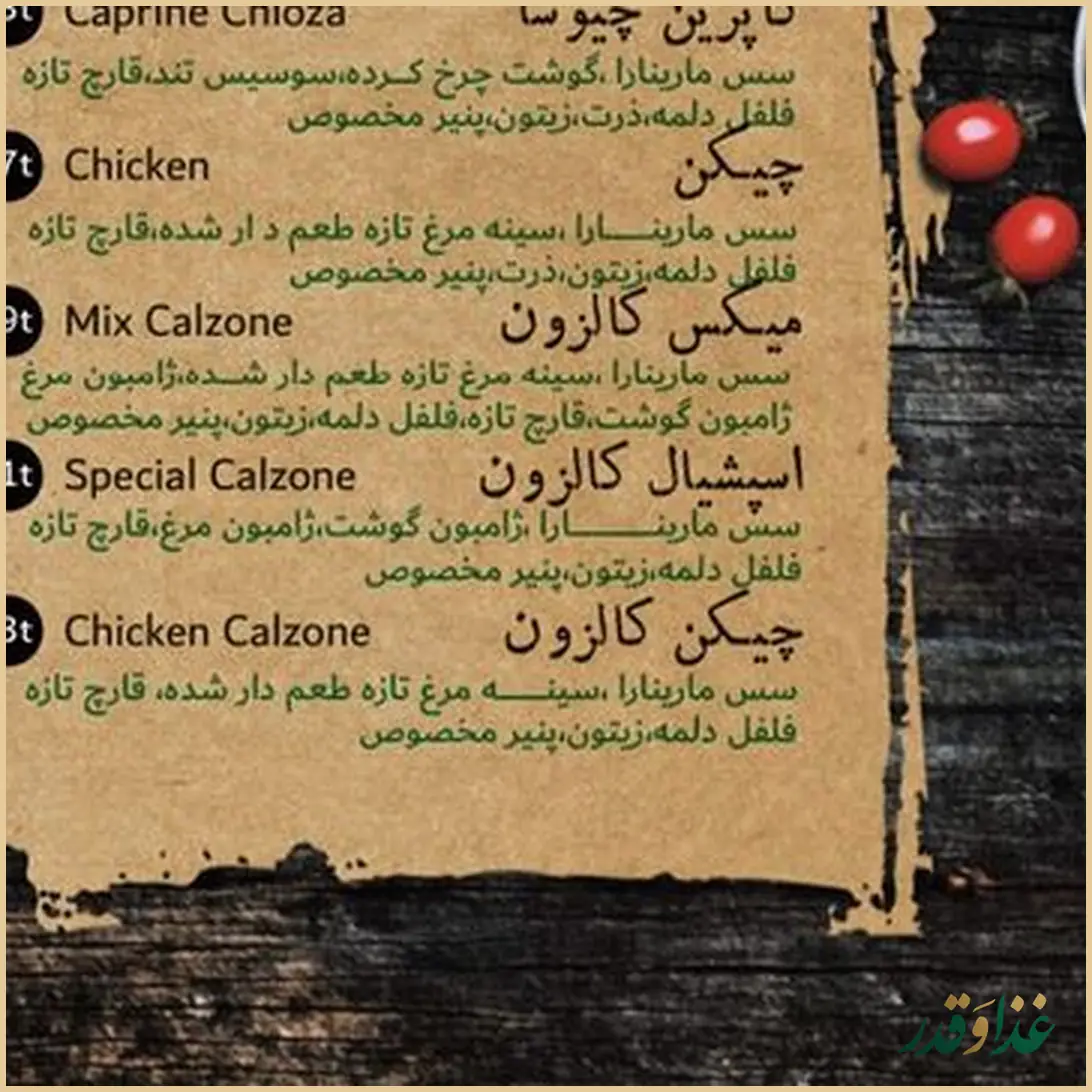 Caprine Chioza کاپرین چیوسا
سس مارینارا ،گوشت چرخ کرده،سوسیس تند،قارچ تازه
فلفل دلمه،ذرت،زیتون،پنیر مخصوص
7t Chicken چیکن
سس مارینارا ،سینه مرغ تازه طعم د ار شده،قارچ تازه
فلفل دلمه،زیتون،ذرت،پنیر مخصوص
9t Mix Calzone میکس کالزون
سس مارینارا ،سینه مرغ تازه طعم دار شده،ژامبون مرغ
ژامبون گوشت،قارچ تازه،فلفل دلمه،زیتون،پنیر مخصوص
1t Special Calzone اسپشیال کالزون
سس مارینارا ،ژامبون گوشت،ژامبون مرغ،قارچ تازه
فلفل دلمه،زیتون،پنیر مخصوص
3t Chicken Calzone چیکن کالزون
سس مارینارا ،سینه مرغ تازه طعم دار شده، قارچ تازه
فلفل دلمه،زیتون،پنیر مخصوص
غذا و قدر